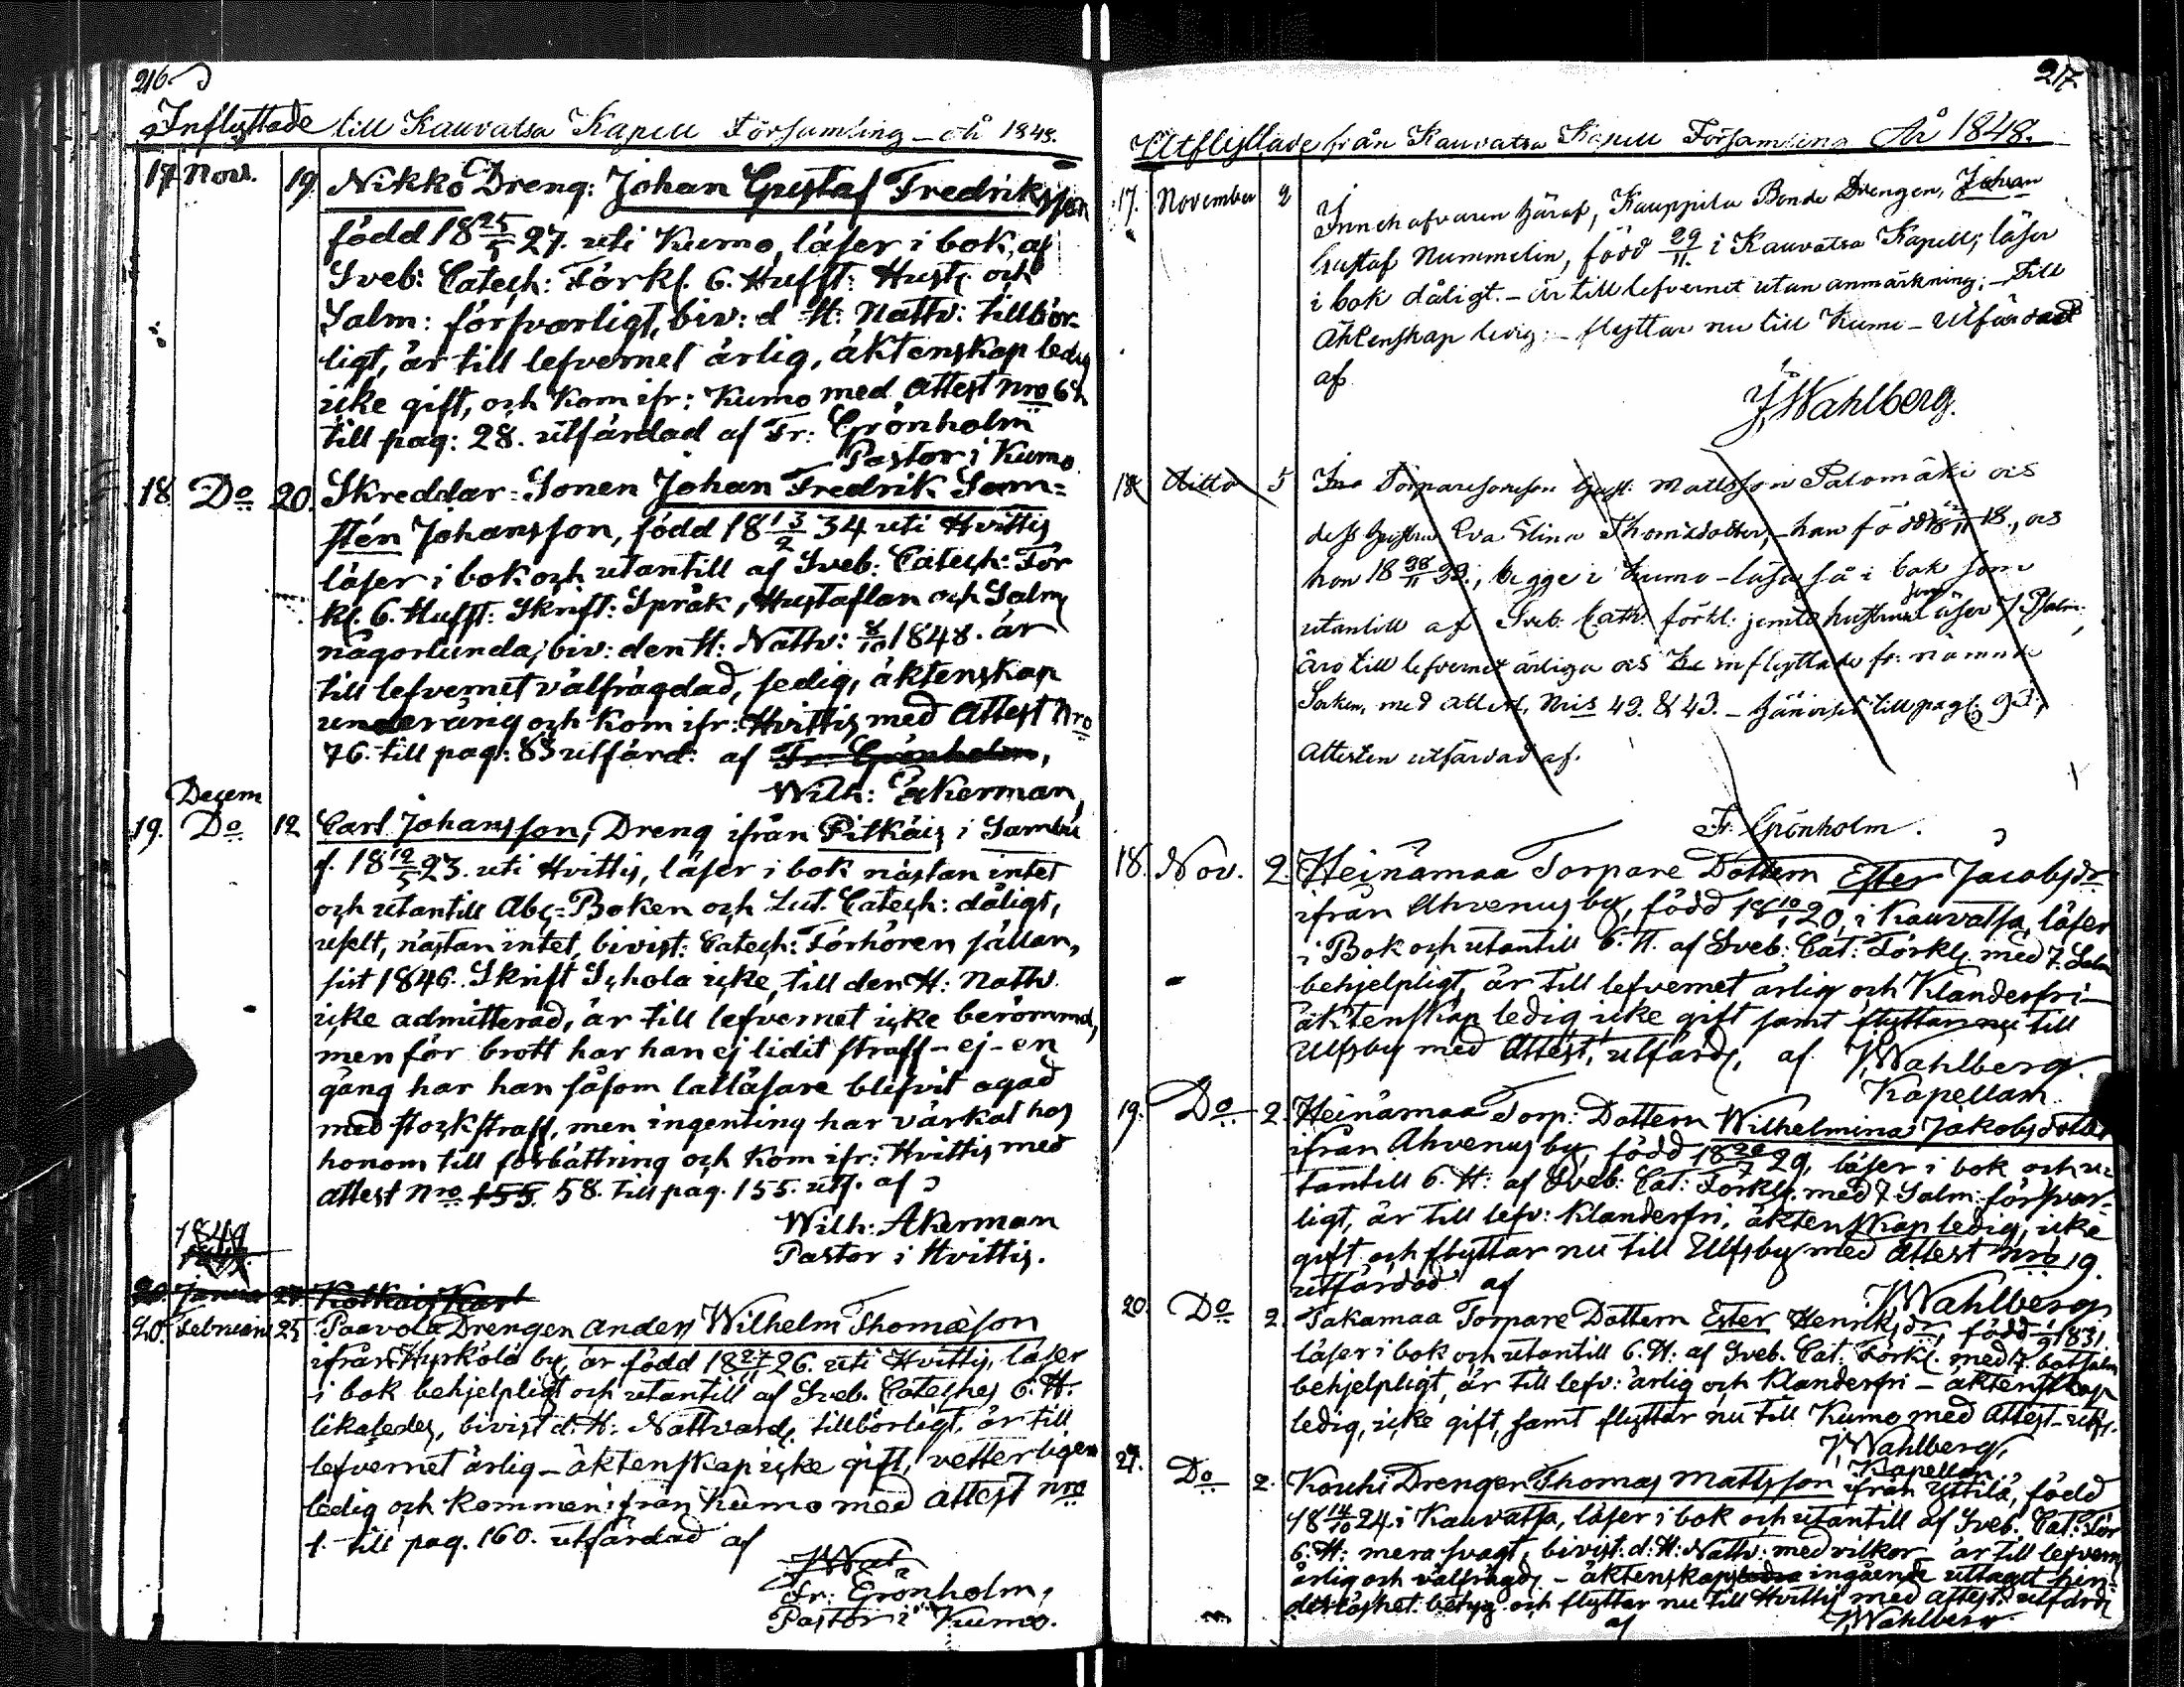 216.
Inflyttade till Kauvatsa Kapell Församling – åhr 1848.
17 Nov. 19. Nikko Dreng: Johan Gustaf Fredriksson
född 18 25/5 27. uti Kumo, läser i bok, af
Sveb: Catech: Förkl. 6. Hufst: Hust: och
Salm: försvarligt, biv: d H: Nattv: tillbör-
ligt, är till lefvernet ärlig, äktenskap ledig
icke gift, och kom ifr: Kumo med Attest Nro
till pag: 28. utfärdad af Fr: Grönholm
Pastor i Kumo
18. Do 20. Skreddar-Sonen Johan Fredrik
stén Johansson, född 18 13/2 34 uti Hvittis,
läser i bok och utantill af Sveb: Catech: För
kl. 6. Hufst: Skrift: Språk, Hustaflan och Salm
någorlunda, biv: den H: Nattv: 8/10 1848. är
till lefvernet välfrägdad, sedig, äktenskap
underårig och kom ifr: Hvittis med Attest Nro
76. till pag: 83 utfärd: af Fr: Grönholm,
Wilh: Åkerman,
Decem
19. Do 12 Carl Johansson, Dreng ifrån Pitkäis i Sambu
f. 18 12/5 23. uti Hvittis, läser i bok nästan intet
och utantill Abc-Boken och Lut. Catech: dåligt,
uselt, nästan intet, bivist: Catech: Förhören sällan,
sist 1846. Skrift Schola icke, till den H: Nattv.
icke admitterad, är till lefvernet icke berömmd,
men för brott har han ej lidit straff – ej – en
gång har han såsom lattläsare blifvit agad
med stockstraff, men ingenting har värkat hos
honom till förbättring och kom ifr: Hvittis med
attest Nro 155. 58. till pag. 155. utf. af
Wilh: Åkerman
Pastor i Hvittis.
1849
20. Janua Kolkais Karl
20. Februari 25 Paavola Drengen Anders Wilhelm Thomæson
ifrån Hyrkölä by, är född 18 27/11 26. uti Hvittis, läser
i bok behjelpligt och utantill af Sveb. Cateches 6. H.
likaledes, bivist d. H: Nattvard, tillbörligt, är till
lefvernet ärlig – äktenskap icke gift, vetterligen
ledig och kommen ifrån Kumo med Attest nro
1. till pag. 160. utfärdad af
Fr: Grönholm,
Pastor i Kumo.
217.
Utflyttade från Kauvatsa Kapell Församling År 1848.
17. November 2 Innehafvaren häraf, Kauppila Bonde Drengen, Johan
Gustaf Nummelin, född 29/11. i Kauvatsa Kapell; läser
i bok dåligt. – är till lefvernet utan anmärkning; – till
Äktenskap ledig; – flyttar nu till Kumo – Utfärdad
af
J Wahlberg.
18 ditto 5 Torparesonen Gust: Mattsson Palomäki och
dess hustru Eva Stina Thomædotter, – han född 18., och
hon 18 28/11 22., begge i Kumo – läser så i bok som
utantill af Sveb: Cath: förkl: jemte hustrun läser 7 Psalm:,
äro till lefvernet ärliga och inflyttade fr: nämnde
Socken, med attest, Nris 42. & 43. – hänvist till pag. 93.,
Attesten utfärdad af.
Fr. Grönholm.
18. Nov. 2. Heinämaa Torpare Dottern Ester Jacobsdr
ifrån Ahvenus by, född 18 10/1 20, i Kauvatsa, läser
i Bok och utantill 6. H. af Sveb: Cat: Förkl. med 7. Salm
behjelpligt, är till lefvernet ärlig och Klanderfri –
äktenskap ledig icke gift samt flyttar nu till
Ulfsby med Attest, utfärd, af J Wahlberg.
Kapellan.
19. Do 2. Heinämaa Torp: Dottern Wilhelmina Jakobsdotter
ifrån Ahvenus by, född 18 20/7 29, läser i bok och u-
tantill 6. H: af Sveb: Cat: Förkl. med 7 Salm: försvar-
ligt, är till lefv: Klanderfri, äktenskap ledig, icke
gift och flyttar nu till Ulfsby med Attest Nro 19.
utfärdad af
J Wahlberg
20. Do 2. Takamaa Torpare Dottern Ester Henriksdr, född 1831
läser i bok och utantill 6. H: af Sveb. Cat: Förkl. med 7. botsalm
behjelpligt, är till lefv: ärlig och Klanderfri – äktenskap
ledig, icke gift, samt flyttar nu till Kumo med Attest – utf.
J Wahlberg,
Kapellan.
21. Do 2. Kouhi Drengen Thomas Mattsson ifrån Yttilä, född
18 14/10 24. i Kauvatsa, läser i bok och utantill af Sveb. Cat: För
6. H: mera svagt, bivist: d: H: Nattv: med vilkor – är till lefvern
ärlig och välfrägd, – äktenskaps ingående uttaget hin-
derlöshet. betyg och flyttar nu till Hvittis med attest utfärd,
af J Wahlberg